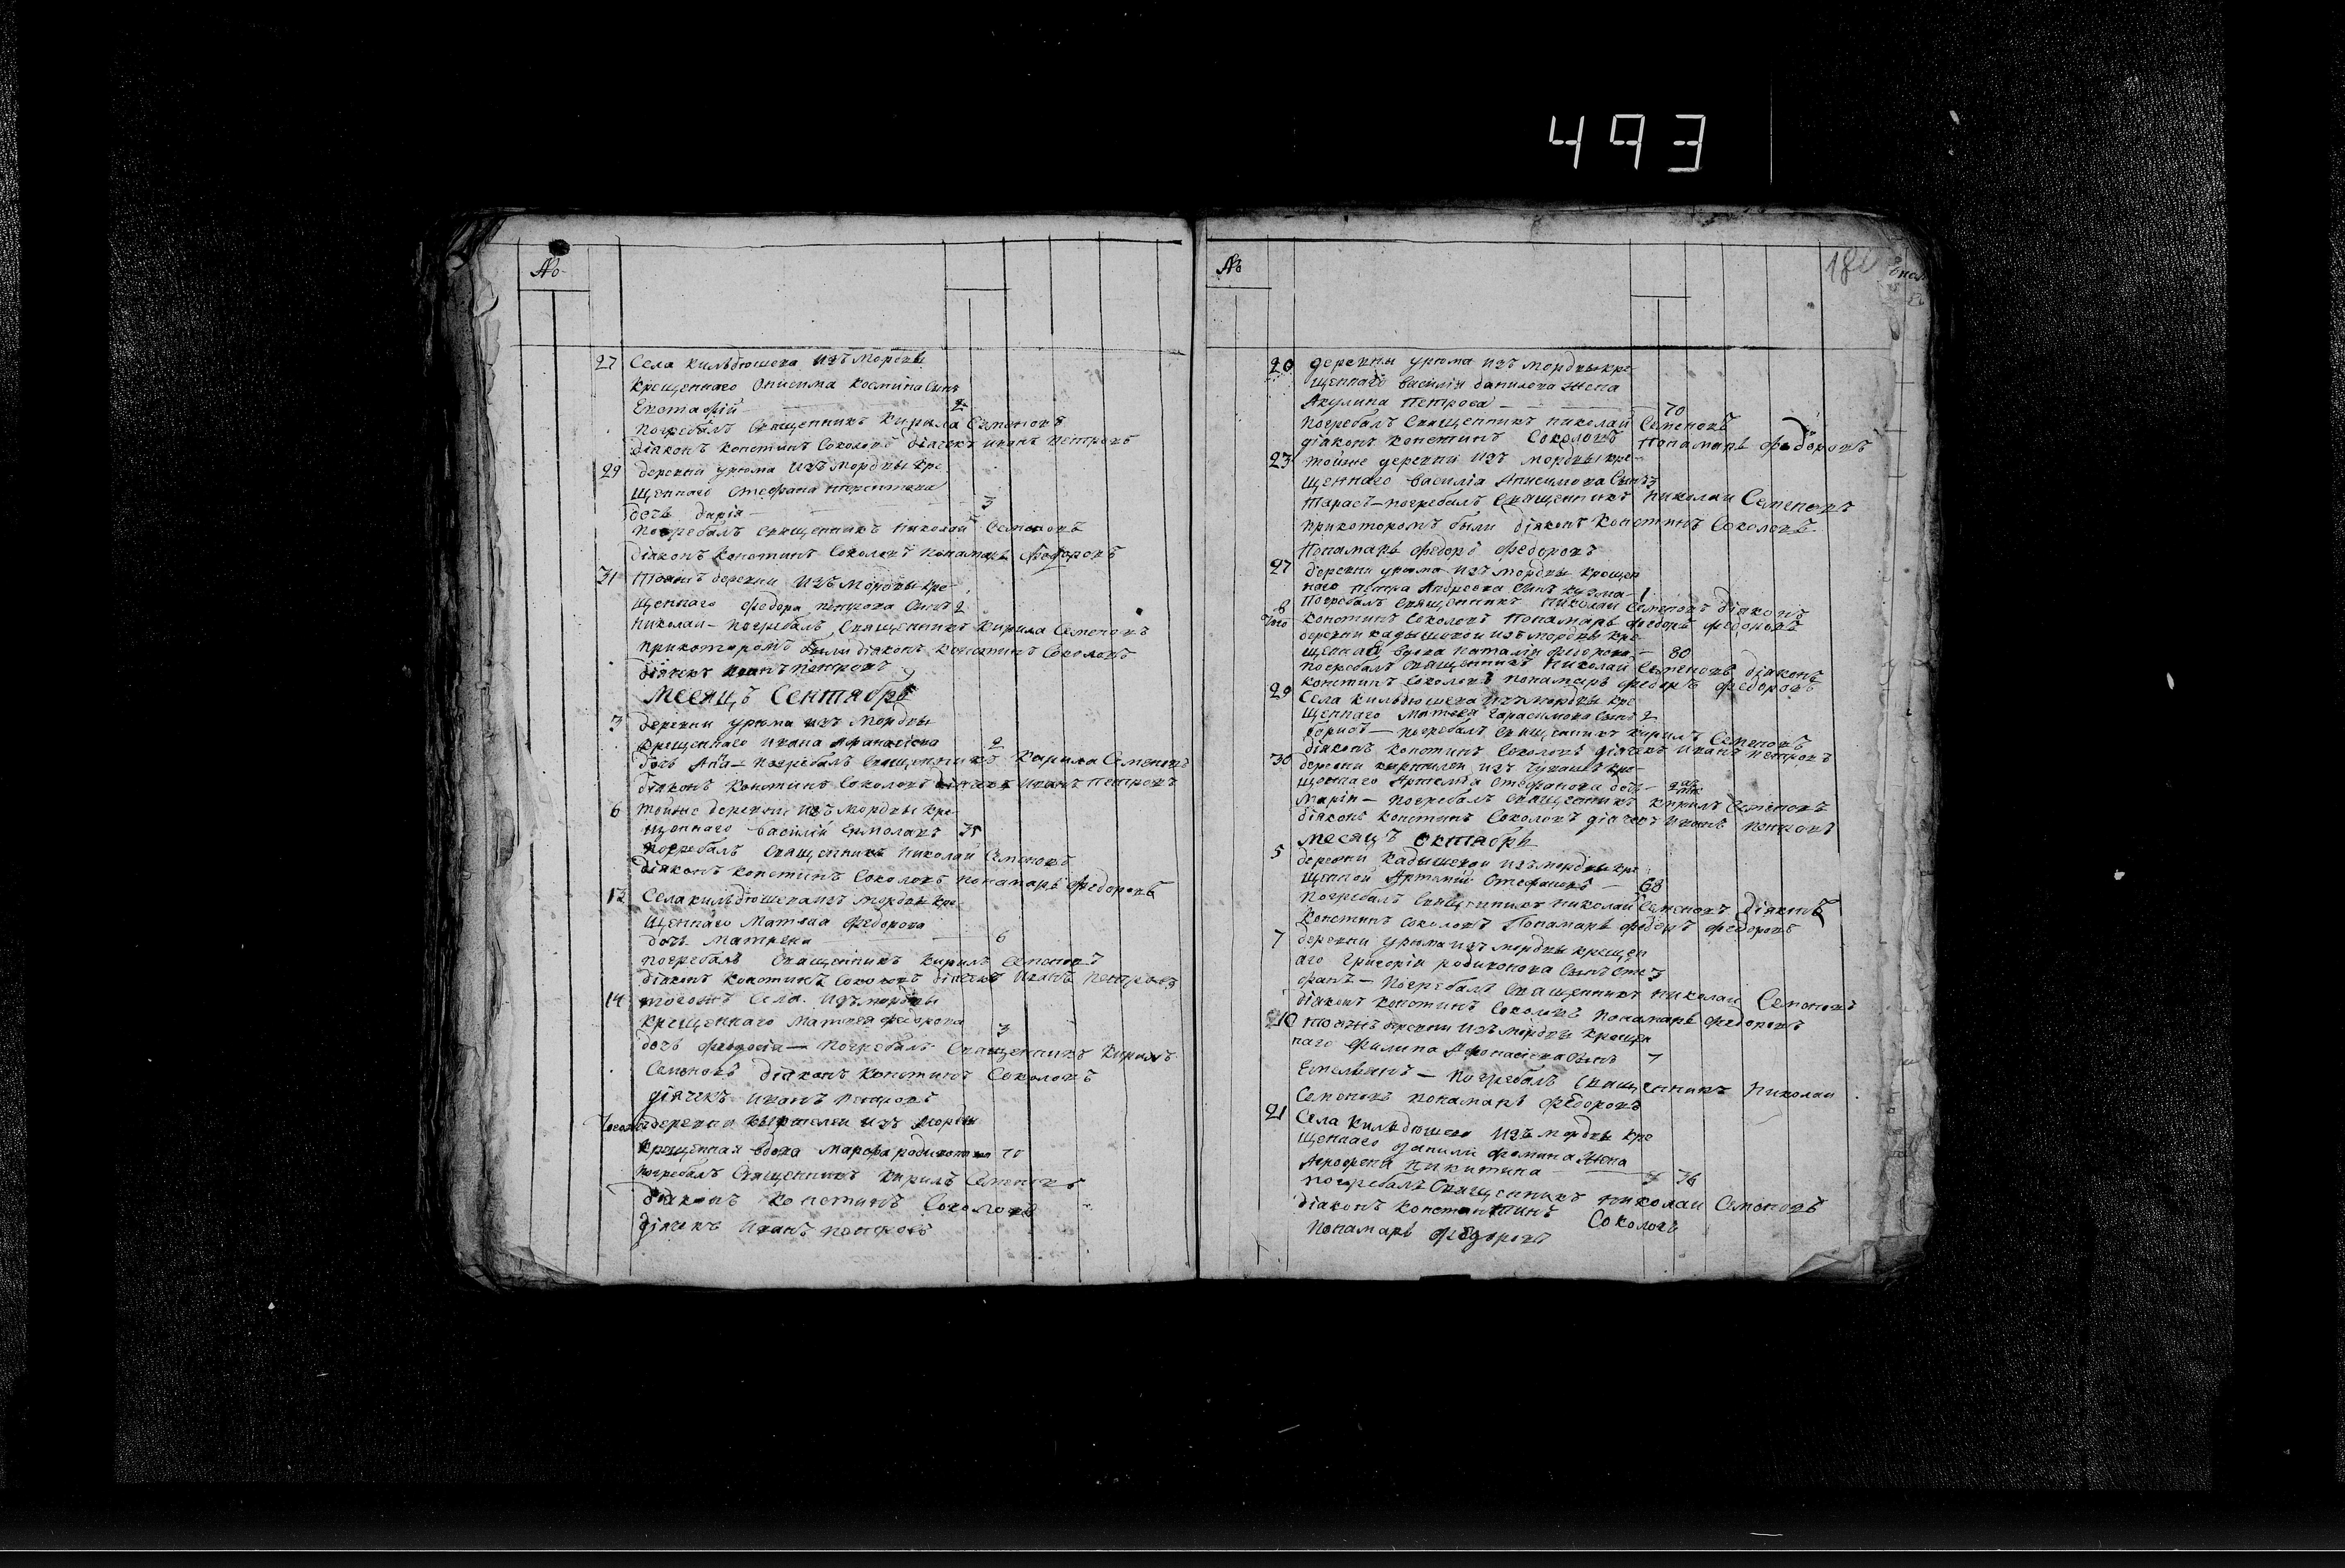 493
180
№
27 Села Кильдюшева изъ Мордвы
крещеннаго Онисима Космина Сынъ
Евстафій — 2
погребалъ Священникъ Кирила Семеновъ
діаконъ Констинъ Соколовъ діячекъ Иванъ Петровъ
29 деревни урюма изъ Мордвы кре
щеннаго Стефана
дочь Дарія — 3
погребалъ Священникъ Николай Семеновъ
діаконъ Констинъ Соколовъ понамарь Федоровъ
31 Тояжъ деревни изъ Мордвы кре
щеннаго Федора Петрова Сынъ 2
Николай — погребалъ Священникъ Кирила Семеновъ
прикоторомъ были діаконъ Констинъ Соколовъ
діячекъ Иванъ Петровъ
Месяцъ Сентябрь
3 деревни урюма изъ Мордвы
крещеннаго Ивана Афанасіева 2
дочь Анна — погребалъ Священникъ Кирила Семеновъ
діаконъ Констинъ Соколовъ діячекъ Иванъ Петровъ
6 тойже деревни изъ Мордвы кре
щеннаго Василій Ермолаевъ 35
погребалъ Священникъ Николай Семеновъ
діаконъ Констинъ Соколовъ понамарь Федоровъ
13 Села Кильдюшева изъ Мордвы кре
щеннаго Матвеа Федорова
дочь Матрена — 6
погребалъ Священникъ Кирилъ Семеновъ
діаконъ Констинъ Соколовъ діячекъ Иванъ Петровъ
14 тогожъ Села изъ мордвы
крещеннаго Матвея Федорова 3
дочь Феодосіа — погребалъ Священникъ Кирилъ
Семеновъ діаконъ Констинъ Соколовъ
діячекъ Иванъ Петровъ
деревни изъ Мордвы
крещенная вдова Марфа родионова 70
погребалъ Священникъ Кирилъ Семеновъ
діаконъ Констинъ Соколовъ
діячекъ Иванъ Петровъ
№
20 деревни урюма изъ Мордвы кре
щеннаго Василія Данилова жена
Акулина Петрова — 70
погребалъ Священникъ Николай Семеновъ
діаконъ Констинъ Соколовъ понамарь Федоровъ
23 тойже деревни изъ мордвы кре
щеннаго Василіа Анисимова Сынъ 3
Тарасъ — погребалъ Священникъ Николай Семеновъ
прикоторомъ были діаконъ Констинъ Соколовъ
понамарь Федоръ Федоровъ
27 деревни урюма изъ Мордвы крещен
наго Петра Андреева Сынъ Кузма — 1
погребалъ Священникъ Николай Семеновъ діаконъ
Констинъ Соколовъ понамарь Федоръ Федоровъ
деревни кадышевой изъ мордвы кре
щенная вдова Наталія Федорова — 80
погребалъ Священникъ Николай Семеновъ діаконъ
Констинъ Соколовъ понамарь Федоръ Федоровъ
29 Села Кильдюшева изъ мордвы кре
щеннаго Матвея Гарасимова Сынъ 2
Борисъ — погребалъ Священникъ Кирилъ Семеновъ
діаконъ Констинъ Соколовъ діячекъ Иванъ Петровъ
30 деревни изъ Чувашъ кре
щеннаго Артемьа Стефанова дочь —
Маріа — погребалъ Священникъ Кирилъ Семеновъ
діаконъ Констинъ Соколовъ діячекъ Иванъ Петровъ
месяцъ октябрь
5 деревни Кадышевои изъ мордвы кре
щеной Артемій Стефановъ — 68
погребалъ Священникъ Николай Семеновъ Діаконъ
Констинъ Соколовъ Понамарь Федоръ Федоровъ
7 деревни урюма изъ мордвы крещен
аго Григоріа родионова Сынъ Сте 3
фанъ — погребалъ Священникъ Николай Семеновъ
діаконъ Констинъ Соколовъ понамарь Федоровъ
10 тояжъ деревни изъ мордвы крещен
наго Филипа Афонасіева Сынъ 7
Емельянъ — погребалъ Священникъ Николаи
Семеновъ понамарь Федоровъ
21 Села Кильдюшева изъ мордвы кре
щеннаго Данили Фомина жена
Агрофена Никитина — 36
погребалъ Священникъ Николаи Семеновъ
діаконъ Константинъ Соколовъ
понамарь Федоровъ